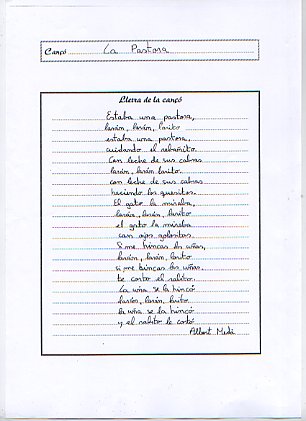 Cançó La Pastora
Lletra de la cançó
Estaba una pastora,
larán, larán, larito
estaba una pastora,
cuidando el rebañito.
Con leche de sus cabras
larán, larán larito.
con leche de sus cabras
haciendo los quesitos.
El gato la miraba,
larán, larán, larito
el gato la miraba
con ojos golositos.
Si me hincas las uñas,
larán, larán, larito
si me hincas las uñas.
te corto el rabito.
La uña se la hincó
larán, larán, larito.
la uña se la hincó
y el rabito le cortó
Albert